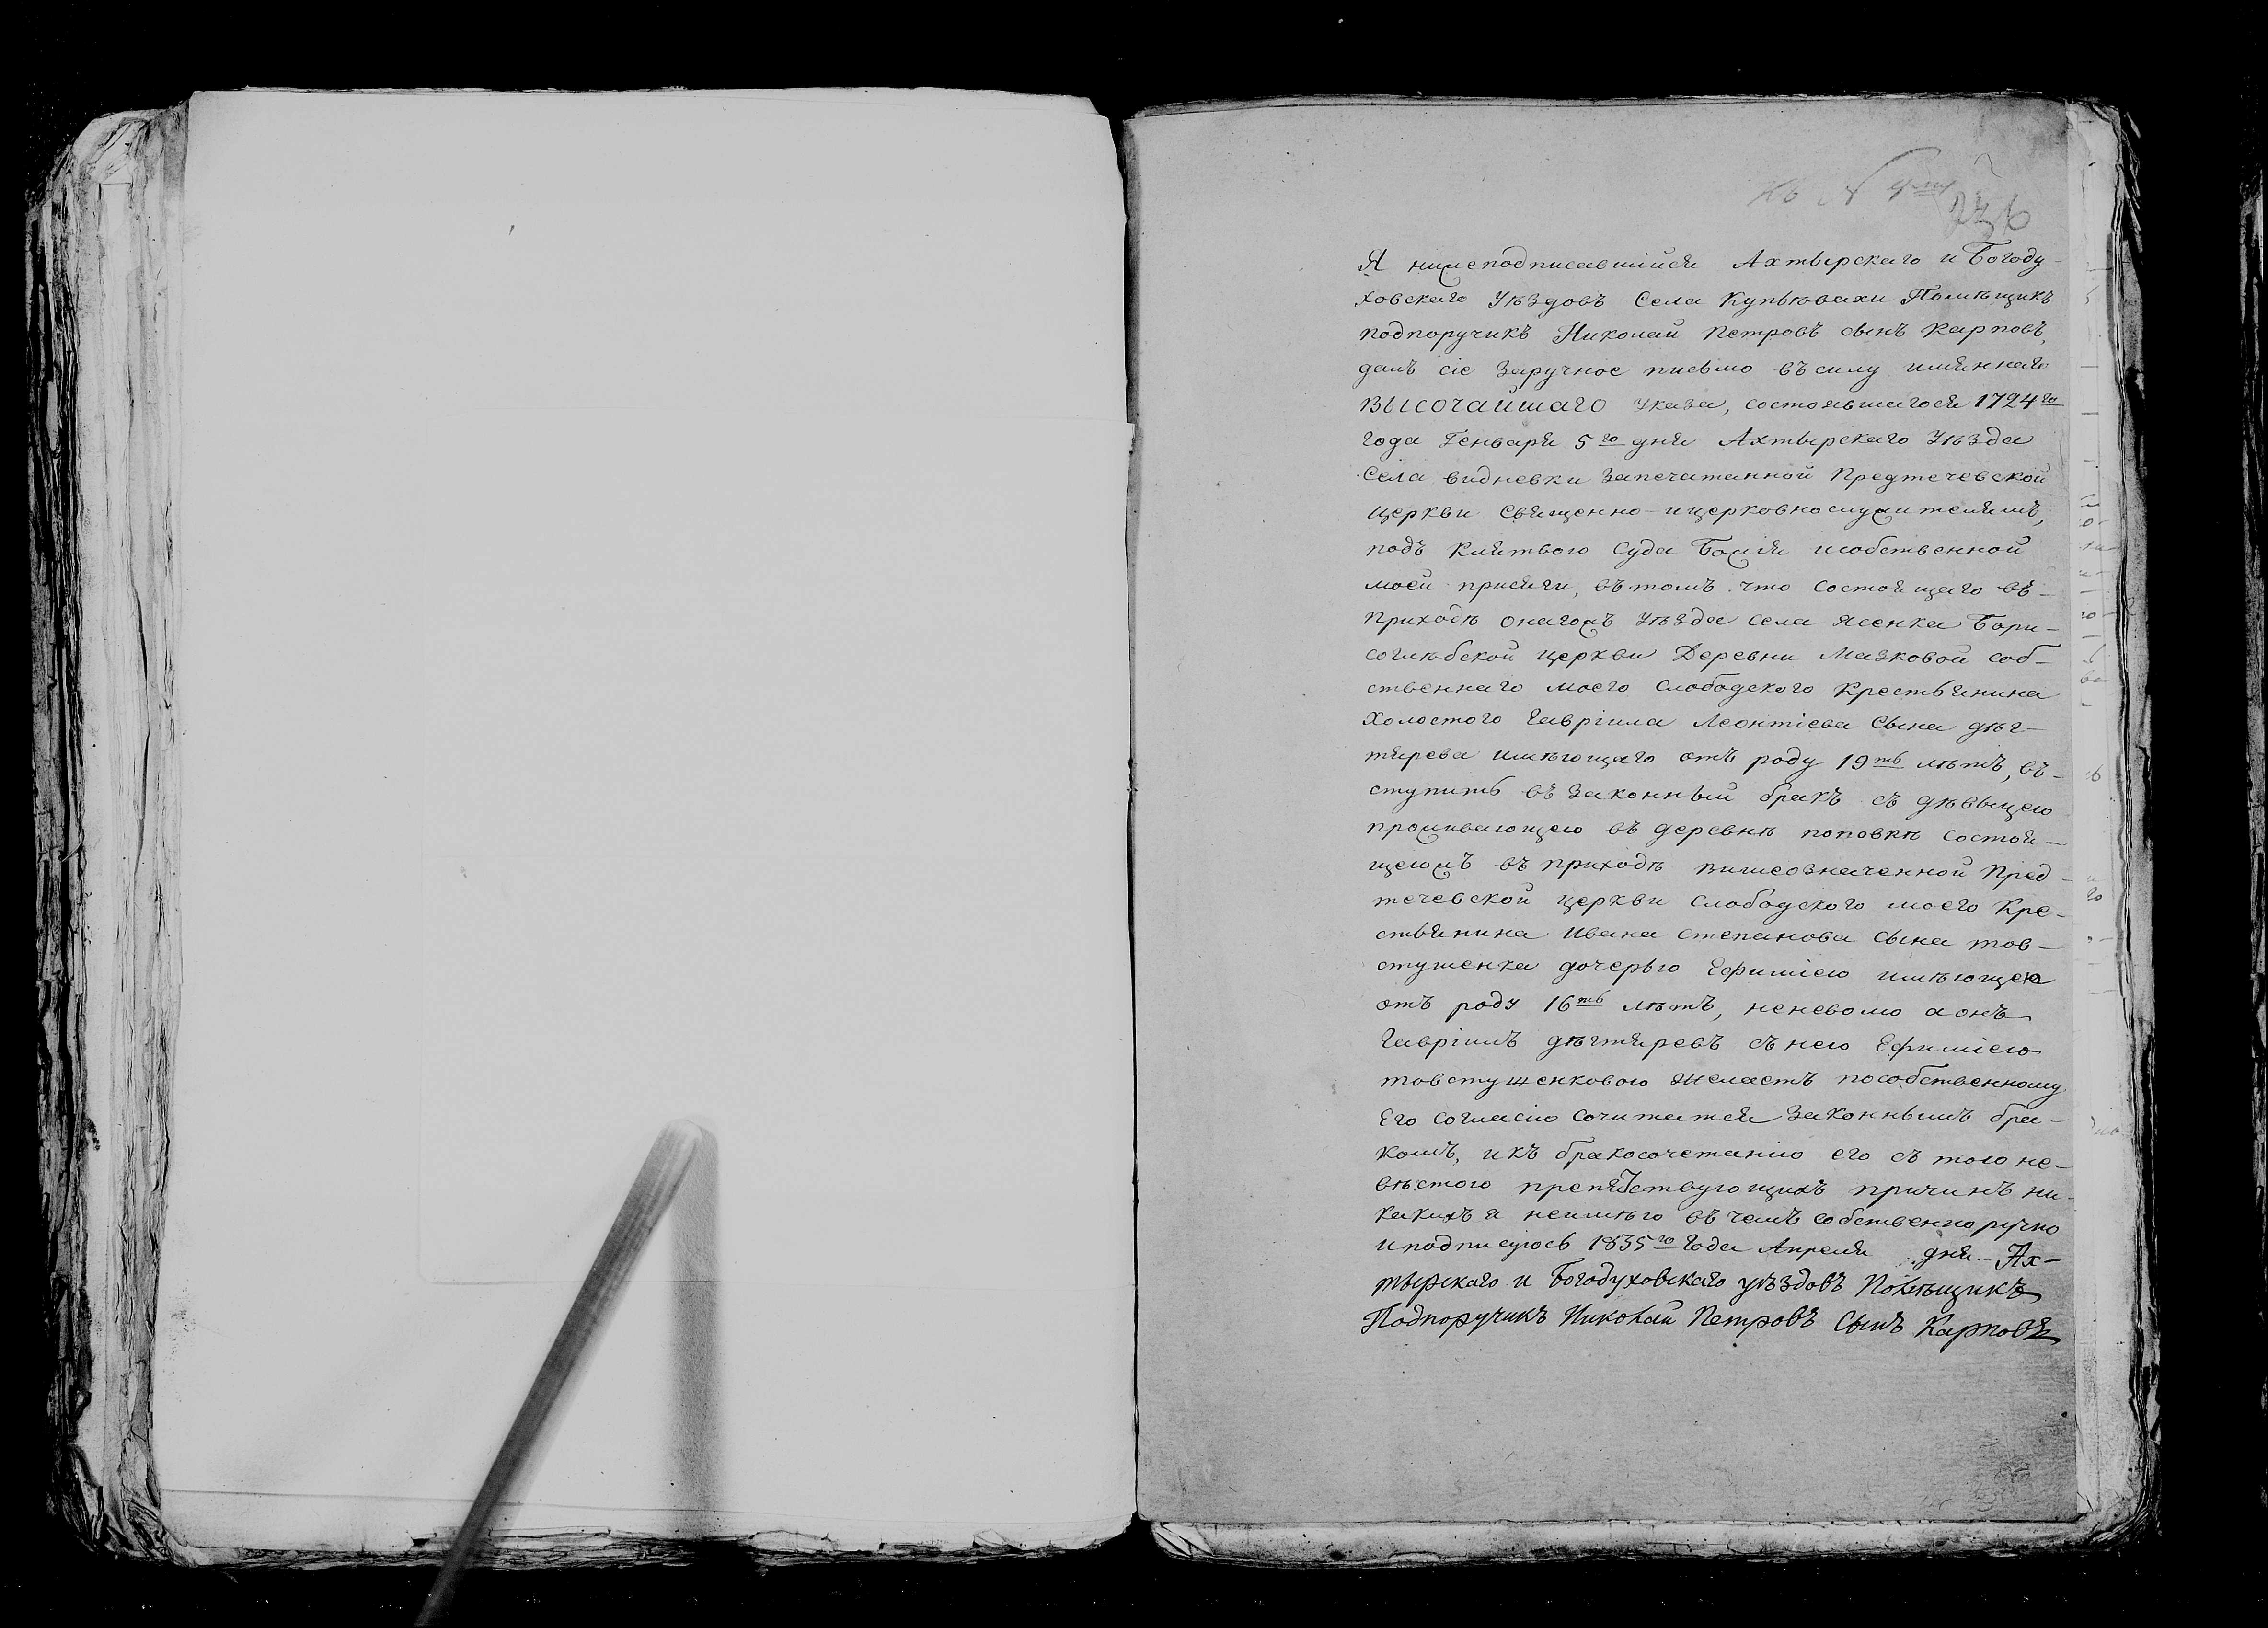 236
Я нижеподписавшійся Ахтырскаго и Богоду-
ховскаго Уѣздовъ Села Купьювахи Помѣщикъ
подпоручикъ Николай Петровъ сынъ Карповъ,
далъ сіе Заручное писъмо въ силу имяннаго
ВЫСОЧАЙШАГО Указа, состоявшагося 1724го
года Генваря 5го дня Ахтырскаго Уѣзда
Села видневки Запечатанной Предтечевской
Церкви Священно-ицерковнослужителямъ,
подъ Клятвою Суда Божія исобственной
моей присяги, въ томъ что состоящаго въ-
приходѣ онагожъ Уѣзда Села Ясенка Бори-
соглѣбской Церкви Деревни Мазковой соб-
ственнаго моего Слободского Крестьянина
Холостого Гавріила Леонтіева Сына дѣг-
тярева имѣющаго отъ роду 19ть лѣтъ, въ-
ступить въ Законный бракъ съ дѣвыцею
проживающею въ деревнѣ поповкѣ состоя-
щеюжъ въ приходѣ вишеозначенной Пред-
течевской церкви Слободского моего Кре-
стьянина Ивана Степанова Сына тов-
стушенка дочерью Ефиміею имѣющею
отъ роду 16ть лѣтъ, неневолю аонъ
Гавріилъ дѣгтяревъ съ нею Ефиміею
товстушенковою желаетъ пособственному
Его согласію сочитатся Законнымъ бра-
комъ, икъ бракосочетанію его съ тою не-
вѣстою препятствующихъ причинъ ни-
какихъ я неимѣю въ чемъ собственноручно
иподписуюсь 1835го Года Апреля дня Ах-
тырскаго и Богодуховскаго уѣздовъ Помѣщикъ
Подпоручикъ Николай Петровъ Сынъ Карповъ